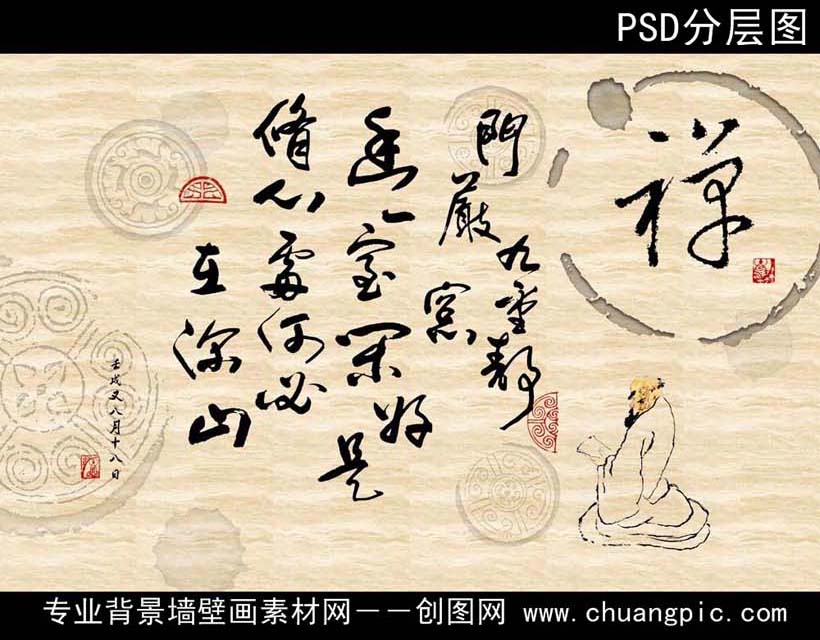 PSD分层图
禅
門嚴九重静窓
幽一室閑好是
脩心處何必
在深山
壬戌又八月十八日
专业背景墙壁画素材网－－创图网 www.chuangpic.com